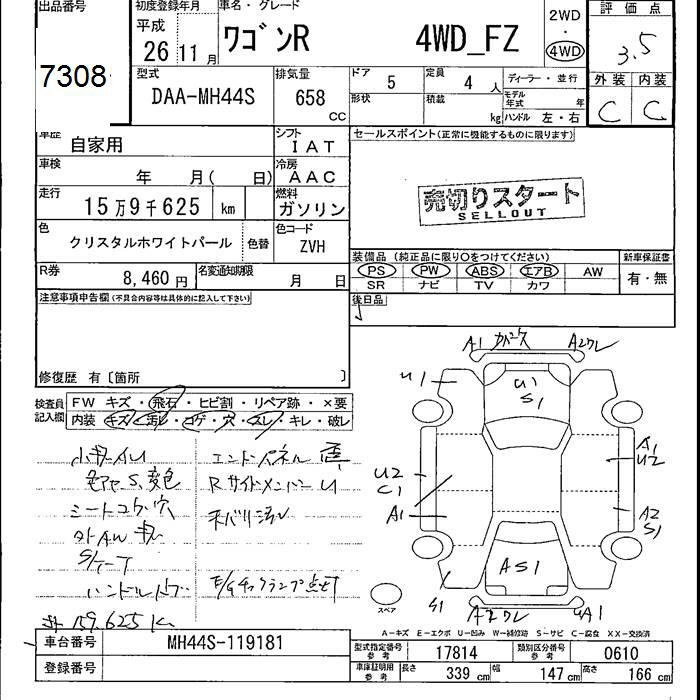 出品番号
7308
初度登録年月
平成
26 11 月
車名・グレード
ワゴンR 4WD_FZ
2WD
・
4WD
評価点
3.5
外装 内装
C C
型式
DAA-MH44S
排気量
658
CC
ドア 5
定員 4 人
形状
積載 kg
ディーラー・並行
モデル年式 年
ハンドル 左・右
車歴
自家用
シフト
IAT
車検
年 月( 日)
冷房
AAC
走行
15万9千625 km
燃料
ガソリン
色
クリスタルホワイトパール
色替
色コード
ZVH
R券
8,460 円
名変通知期限
月 日
セールスポイント(正常に機能するものに限ります)
売切りスタート
SELLOUT
装備品 (純正品に限り○をつけてください)
PS PW ABS エアB AW
SR ナビ TV カワ
新車保証書
有・無
後日品
注意事項申告欄(不具合内容等は具体的に記入して下さい)
修復歴 有〔箇所 〕
検査員記入欄
FW キズ・飛石・ヒビ割・リペア跡・×要
内装 キズ・汚れ・コゲ・穴・スレ・キレ・破レ
小キAU
エンドパネル
Rサイドメンバー U
シートコゲ穴
E/Gチェックランプ点灯
159.625Km
A1
A2ワレ
U1
U1
S1
A1
U2
U2
C1
A1
A2
S1
AS1
S1
A2ワレ
A1
スペア
A-キズ E-エクボ U-凹み W-補修跡 S-サビ C-腐食 XX-交換済
車台番号 MH44S-119181
登録番号
型式指定番号 参考 17814
類別区分番号 参考 0610
車庫証明用 参考 長さ 339 cm 幅 147 cm 高さ 166 cm